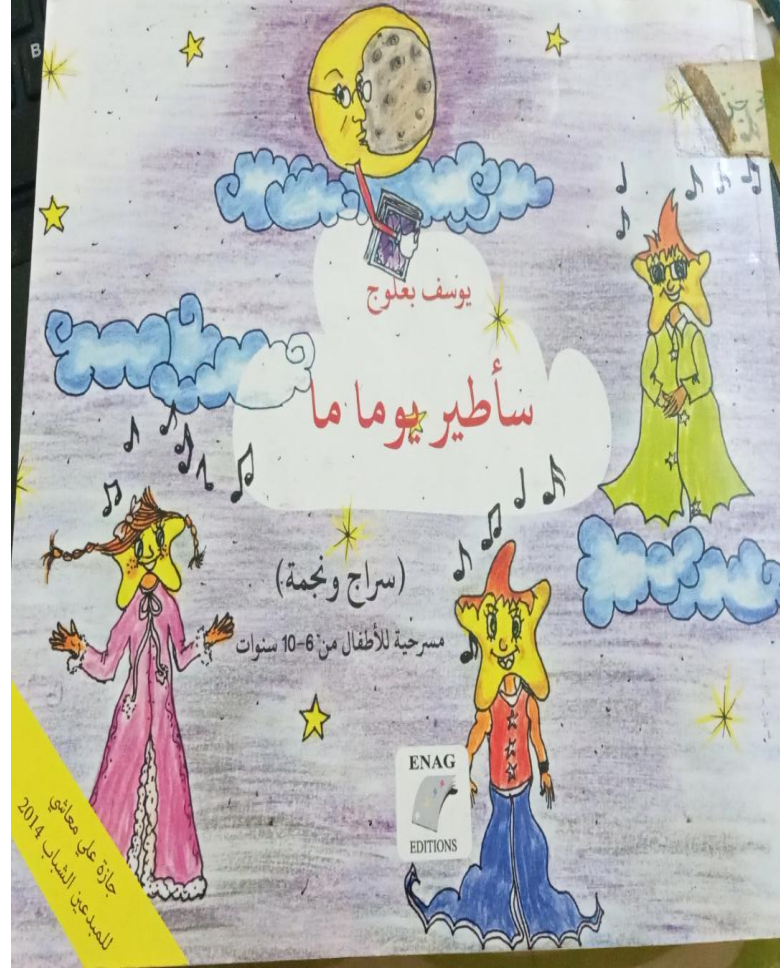 يوسف بعلوج
سأطير يوما ما
(سراج ونجمة)
مسرحية للأطفال من 6-10 سنوات
ENAG
EDITIONS
جائزة علي معاشي
للمبدعين الشباب 2014
B